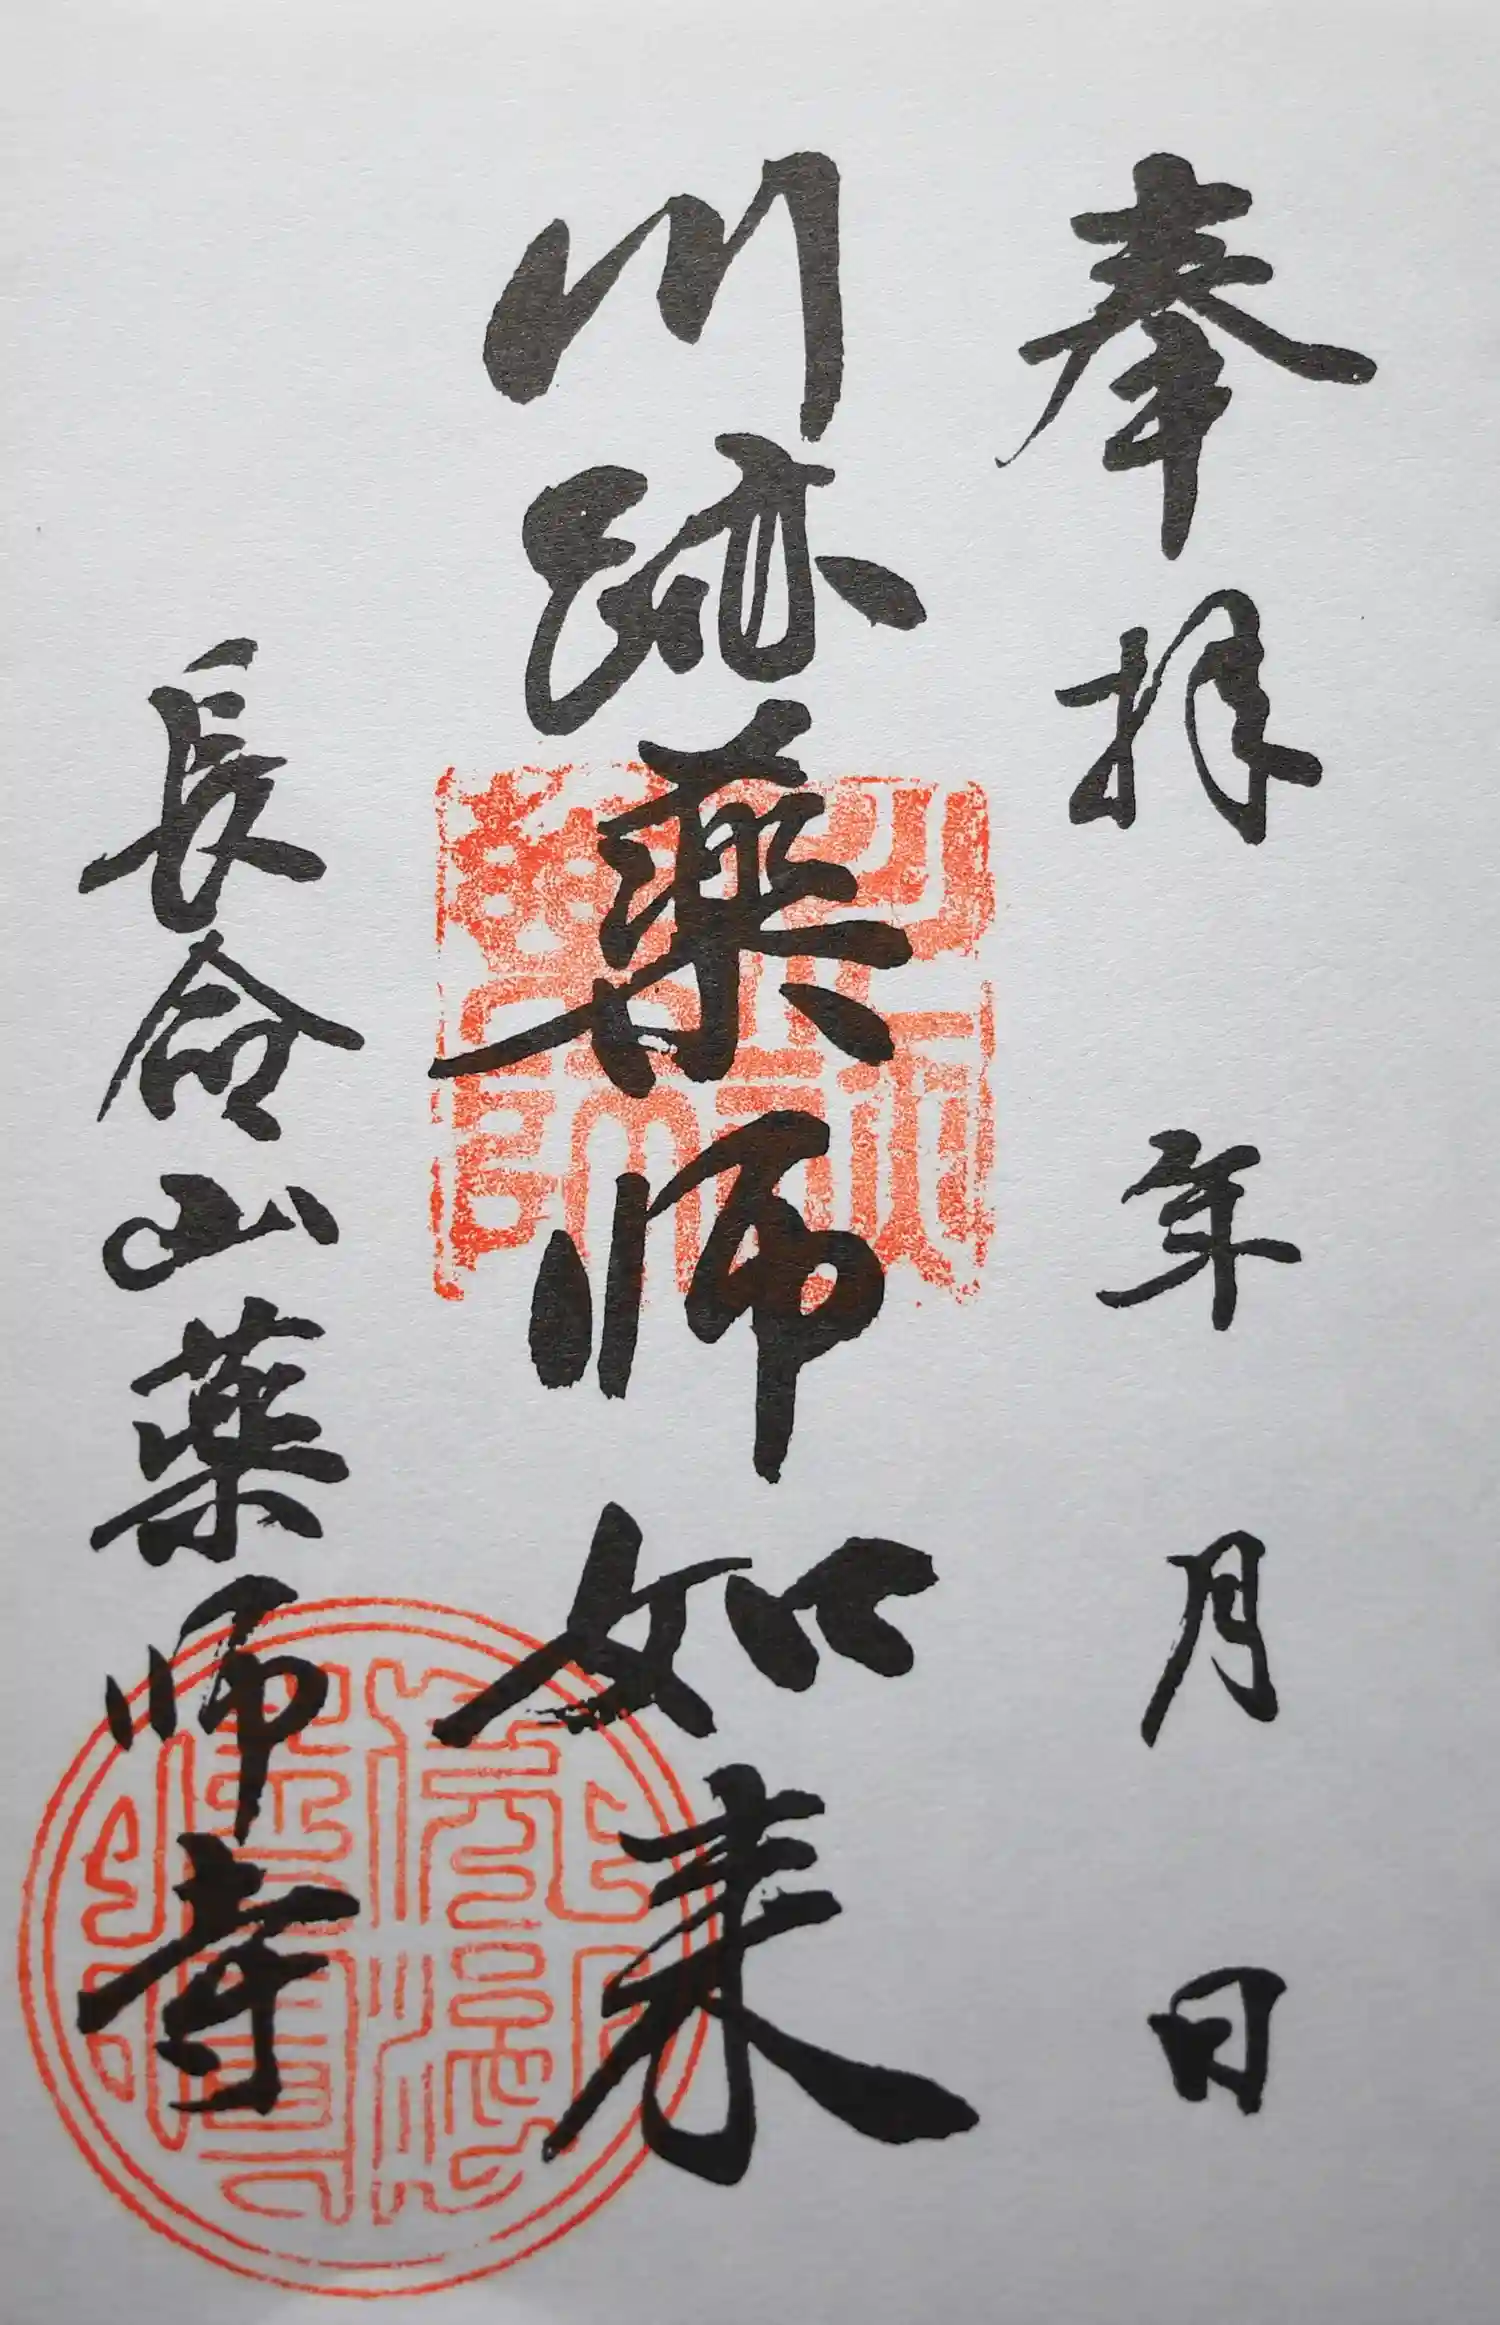 奉拝 年 月 日
川跡薬師如来
長命山薬師寺